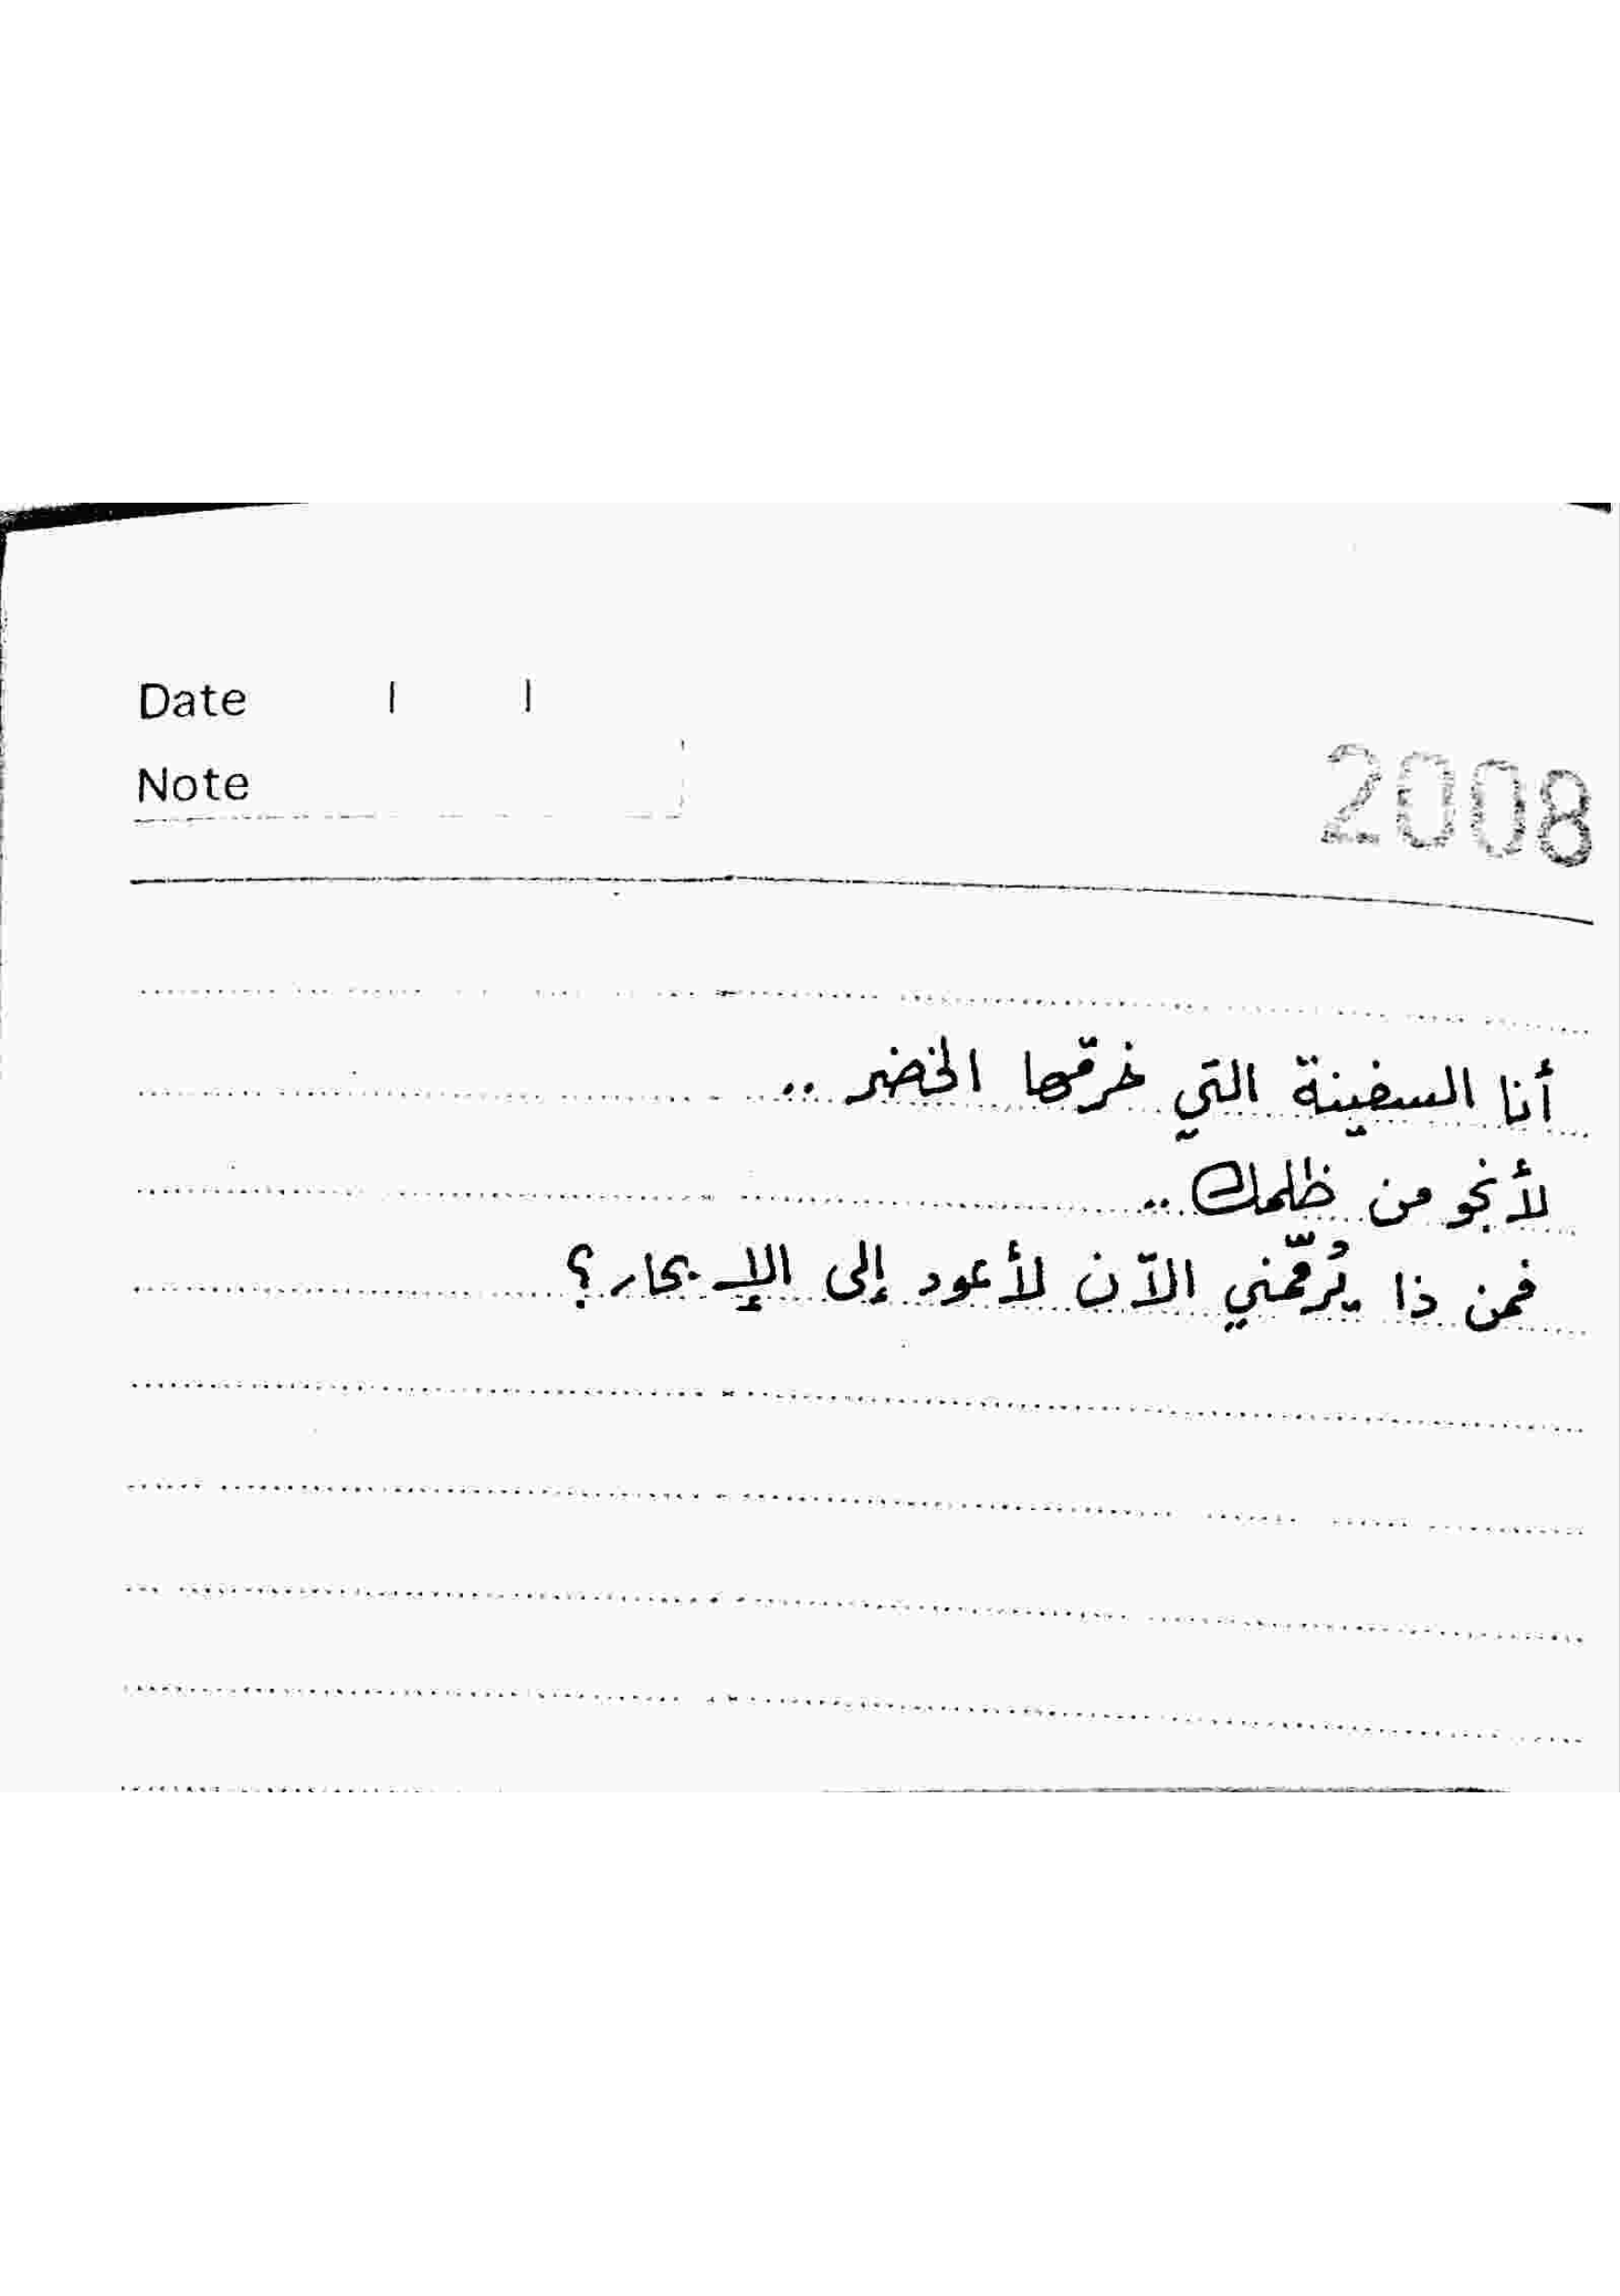 Date / /
Note
2008
أنا السفينة التي خرقها الخضر ..
لأنجو من ظلمك ..
فمن ذا يُرمّمني الآن لأعود إلى الإبحار؟